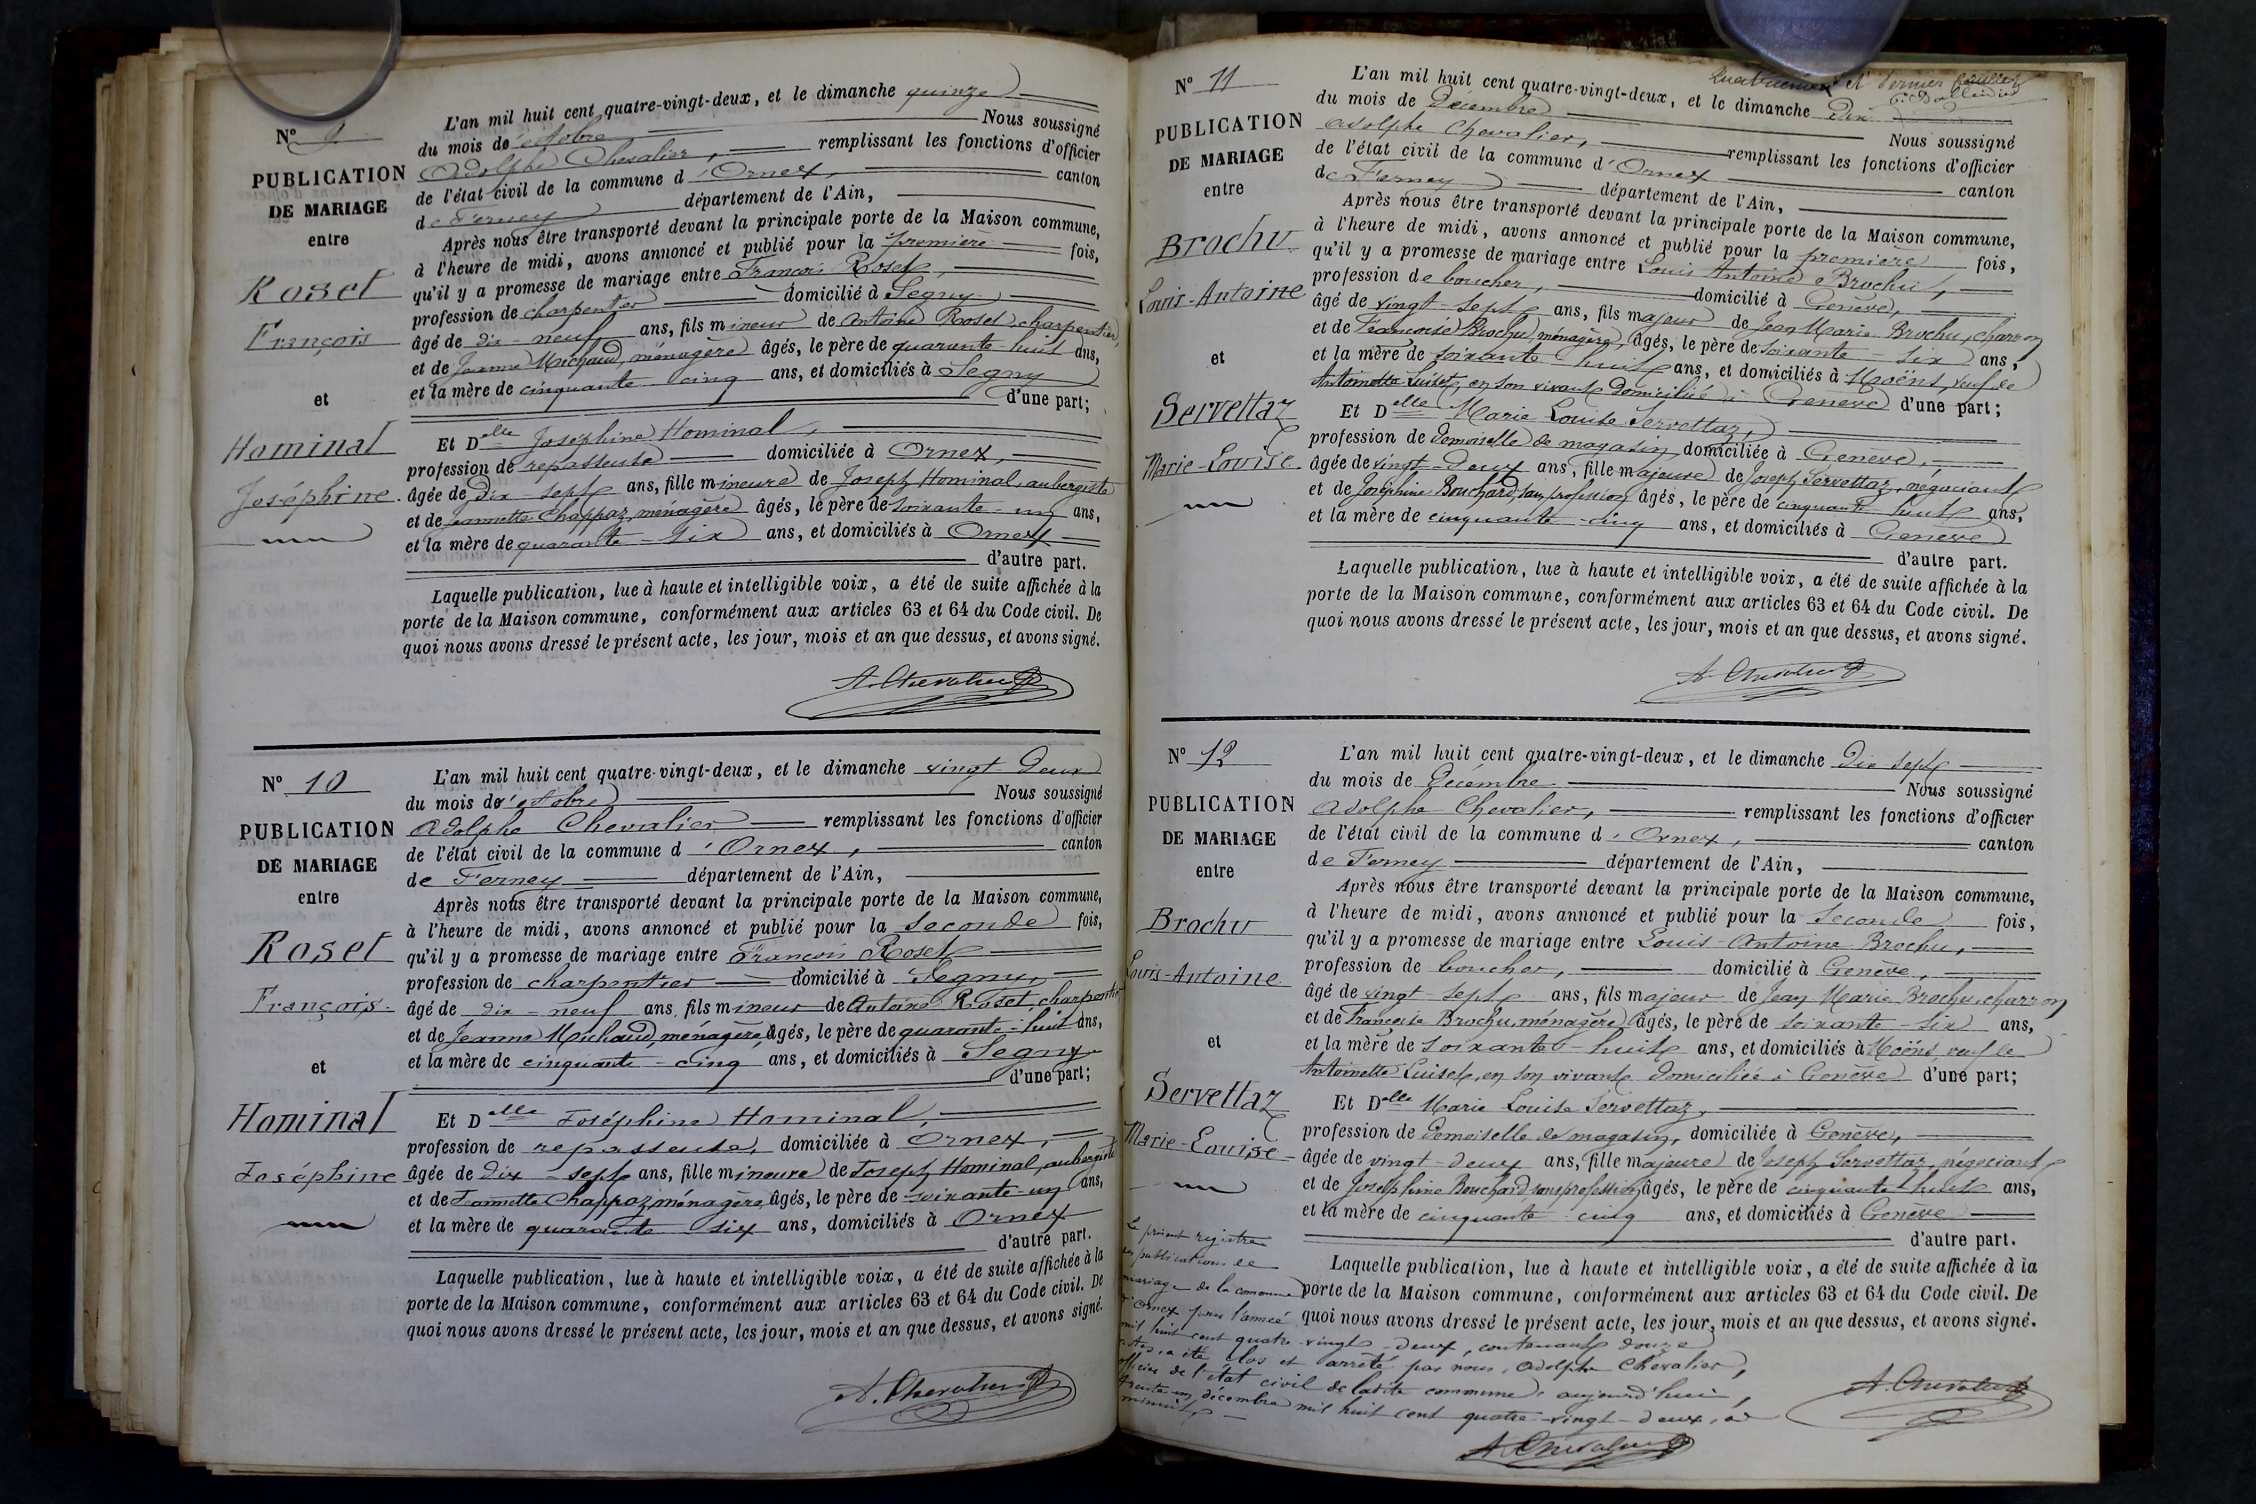 N° 9
PUBLICATION
DE MARIAGE
entre
Roset
François
et
Hominal
Joséphine
L'an mil huit cent quatre-vingt-deux, et le dimanche quinze
du mois d'octobre Nous soussigné
Adolphe Chevalier, remplissant les fonctions d'officier
de l'état civil de la commune d'Ornex, canton
de Ferney département de l'Ain,
Après nous être transporté devant la principale porte de la Maison commune,
à l'heure de midi, avons annoncé et publié pour la première fois,
qu'il y a promesse de mariage entre François Roset,
profession de charpentier domicilié à Segny
âgé de dix-neuf ans, fils mineur de Antoine Roset, charpentier,
et de Jeanne Michaud, ménagère âgés, le père de quarante-huit ans,
et la mère de cinquante cinq ans, et domiciliés à Segny
d'une part;
Et Delle Joséphine Hominal,
profession de repasseuse domiciliée à Ornex,
âgée de dix-sept ans, fille mineure de Joseph Hominal, aubergiste
et de Jeannette Chappaz, ménagère âgés, le père de soixante-un ans,
et la mère de quarante-six ans, et domiciliés à Ornex
d'autre part.
Laquelle publication, lue à haute et intelligible voix, a été de suite affichée à la
porte de la Maison commune, conformément aux articles 63 et 64 du Code civil. De
quoi nous avons dressé le présent acte, les jour, mois et an que dessus, et avons signé.
A. Chevalier
N° 10
PUBLICATION
DE MARIAGE
entre
Roset
François.
et
Hominal
Joséphine
L'an mil huit cent quatre-vingt-deux, et le dimanche vingt deux
du mois d'octobre Nous soussigné
Adolphe Chevalier remplissant les fonctions d'officier
de l'état civil de la commune d'Ornex, canton
de Ferney département de l'Ain,
Après nous être transporté devant la principale porte de la Maison commune,
à l'heure de midi, avons annoncé et publié pour la seconde fois,
qu'il y a promesse de mariage entre François Roset
profession de charpentier domicilié à Segny,
âgé de dix-neuf ans, fils mineur de Antoine Roset, charpentier
et de Jeanne Michaud, ménagère, âgés, le père de quarante-huit ans,
et la mère de cinquante-cinq ans, et domiciliés à Segny
d'une part;
Et Delle Joséphine Hominal,
profession de repasseuse, domiciliée à Ornex,
âgée de dix-sept ans, fille mineure de Joseph Hominal, aubergiste
et de Jeannette Chappaz, ménagère, âgés, le père de soixante-un ans,
et la mère de quarante-six ans, domiciliés à Ornex
d'autre part.
Laquelle publication, lue à haute et intelligible voix, a été de suite affichée à la
porte de la Maison commune, conformément aux articles 63 et 64 du Code civil. De
quoi nous avons dressé le présent acte, les jour, mois et an que dessus, et avons signé.
A. Chevalier
et dernier feuillet
N° 11
PUBLICATION
DE MARIAGE
entre
Brochu
Louis-Antoine
et
Servettaz
Marie-Louise
L'an mil huit cent quatre-vingt-deux, et le dimanche dix
du mois de Décembre Nous soussigné
Adolphe Chevalier, remplissant les fonctions d'officier
de l'état civil de la commune d'Ornex canton
de Ferney département de l'Ain,
Après nous être transporté devant la principale porte de la Maison commune,
à l'heure de midi, avons annoncé et publié pour la première fois,
qu'il y a promesse de mariage entre Louis Antoine Brochu,
profession de boucher, domicilié à Genève,
âgé de vingt-sept ans, fils majeur de Jean Marie Brochu, charron
et de Françoise Brochu, ménagère, âgés, le père de soixante-six ans,
et la mère de soixante huit ans, et domiciliés à Moëns, veuf de
Antoinette Luiset, en son vivant domiciliée à Genève d'une part;
Et Delle Marie Louise Servettaz,
profession de demoiselle de magasin, domiciliée à Genève,
âgée de vingt-deux ans, fille majeure de Joseph Servettaz, négociant
et de Joséphine Bouchard, sans profession, âgés, le père de cinquante huit ans,
et la mère de cinquante-cinq ans, et domiciliés à Genève
d'autre part.
Laquelle publication, lue à haute et intelligible voix, a été de suite affichée à la
porte de la Maison commune, conformément aux articles 63 et 64 du Code civil. De
quoi nous avons dressé le présent acte, les jour, mois et an que dessus, et avons signé.
A. Chevalier
N° 12
PUBLICATION
DE MARIAGE
entre
Brochu
Louis-Antoine
et
Servettaz
Marie-Louise
L'an mil huit cent quatre-vingt-deux, et le dimanche dix sept
du mois de Décembre Nous soussigné
Adolphe Chevalier, remplissant les fonctions d'officier
de l'état civil de la commune d'Ornex, canton
de Ferney département de l'Ain,
Après nous être transporté devant la principale porte de la Maison commune,
à l'heure de midi, avons annoncé et publié pour la seconde fois,
qu'il y a promesse de mariage entre Louis-Antoine Brochu,
profession de boucher, domicilié à Genève,
âgé de vingt-sept ans, fils majeur de Jean Marie Brochu, charron
et de Françoise Brochu, ménagère âgés, le père de soixante-six ans,
et la mère de soixante-huit ans, et domiciliés à Moëns, veuf de
Antoinette Luiset, en son vivant domiciliée à Genève d'une part;
Et Delle Marie Louise Servettaz,
profession de demoiselle de magasin, domiciliée à Genève,
âgée de vingt-deux ans, fille majeure de Joseph Servettaz, négociant
et de Joséphine Bouchard, sans profession, âgés, le père de cinquante huit ans,
et la mère de cinquante cinq ans, et domiciliés à Genève
d'autre part.
Laquelle publication, lue à haute et intelligible voix, a été de suite affichée à la
porte de la Maison commune, conformément aux articles 63 et 64 du Code civil. De
quoi nous avons dressé le présent acte, les jour, mois et an que dessus, et avons signé.
A. Chevalier
Le présent registre
des publications de
mariage de la commune
d'Ornex pour l'année
mil huit cent quatre-vingt-deux, contenant douze
actes, a été clos et arrêté par nous, Adolphe Chevalier,
officier de l'état civil de ladite commune, aujourd'hui,
trente-un décembre mil huit cent quatre-vingt-deux, à
minuit
A. Chevalier